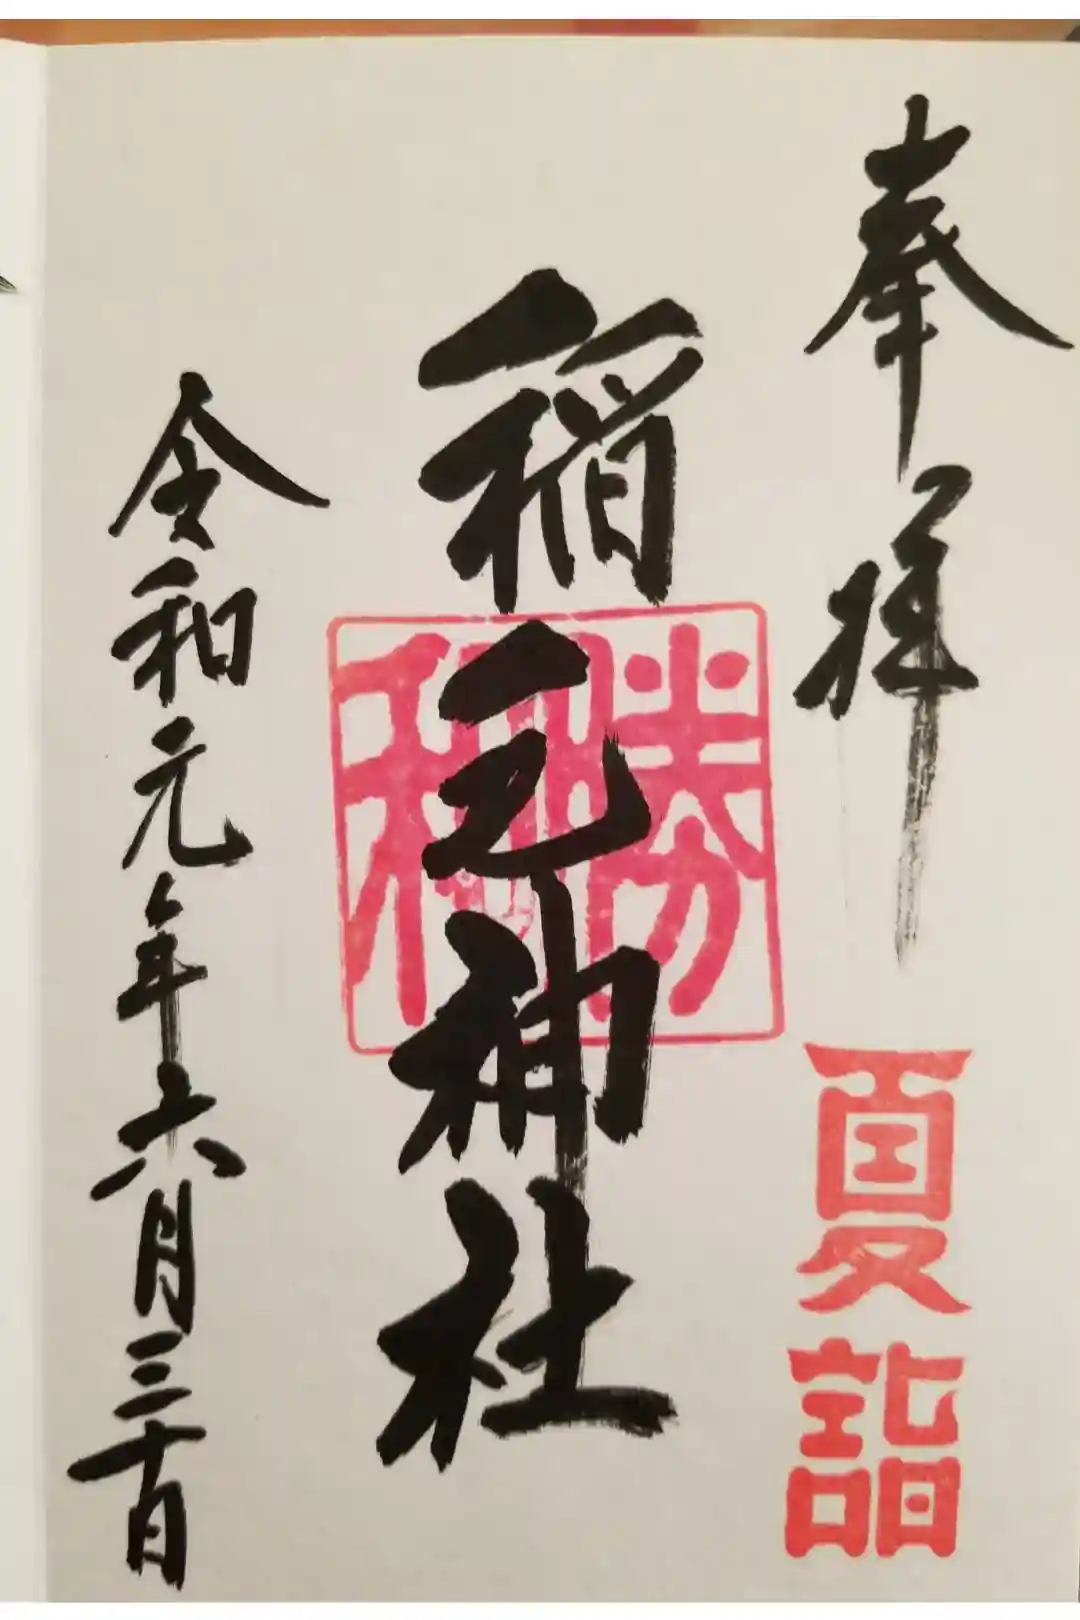 奉拝
夏詣
稲毛神社
勝利
令和元年六月三十日